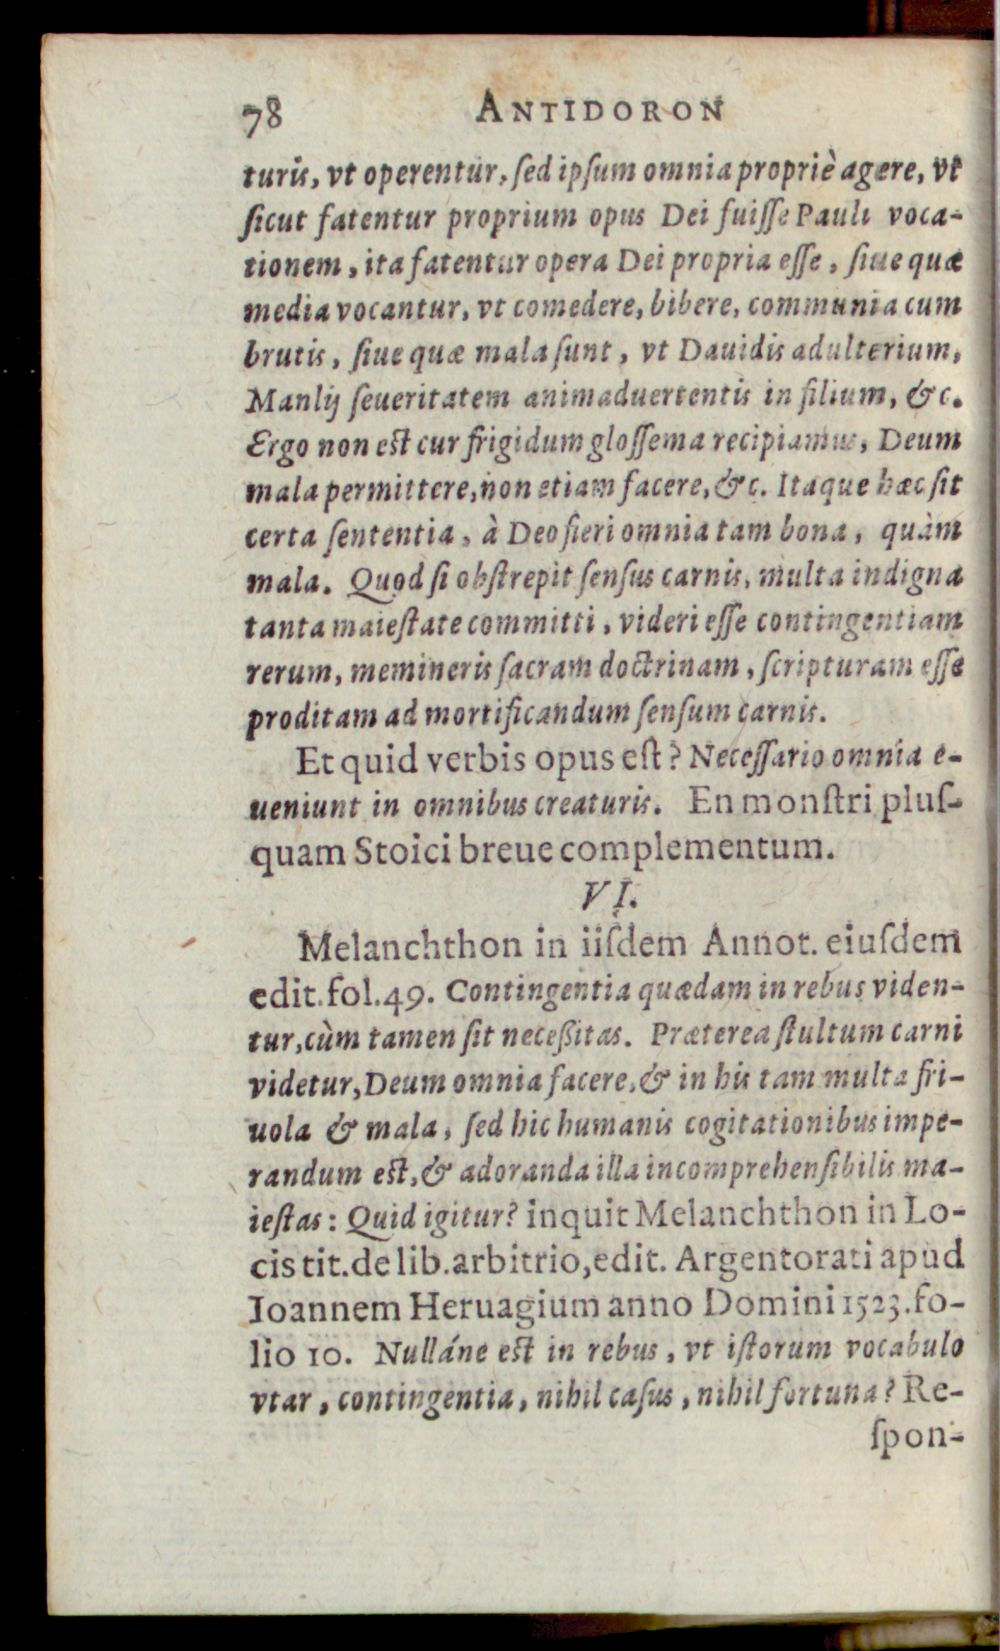 78 ANTIDORON
turis, vt operentur, ſed ipſum omnia propriè agere, vt
ſicut fatentur proprium opus Dei fuiſſe Pauli voca-
tionem, ita fatentur opera Dei propria eſſe, ſiue quæ
media vocantur, vt comedere, bibere, communia cum
brutis, ſiue quæ mala ſunt, vt Dauidis adulterium,
Manlij ſeueritatem animaduertentis in filium, &c.
Ergo non est cur frigidum gloſſema recipiamus, Deum
mala permittere, non etiam facere, &c. Itaque hæc ſit
certa ſententia, à Deo fieri omnia tam bona, quàm
mala. Quod ſi obſtrepit ſenſus carnis, multa indigna
tanta maieſtate committi, videri eſſe contingentiam
rerum, memineris ſacram doctrinam, ſcripturam eſſe
proditam ad mortificandum ſenſum carnis.
Et quid verbis opus eſt? Neceſſario omnia e-
ueniunt in omnibus creaturis. En monſtri pluſ-
quam Stoici breue complementum.
VI.
Melanchthon in iiſdem Annot. eiuſdem
edit. fol. 49. Contingentia quædam in rebus viden-
tur, cùm tamen ſit neceßitas. Præterea ſtultum carni
videtur, Deum omnia facere, & in his tam multa fri-
uola & mala, ſed hic humanis cogitationibus impe-
randum est, & adoranda illa incomprehenſibilis ma-
ieſtas: Quid igitur? inquit Melanchthon in Lo-
cis tit. de lib. arbitrio, edit. Argentorati apud
Ioannem Heruagium anno Domini 1523. fo-
lio 10. Nulláne est in rebus, vt iſtorum vocabulo
vtar, contingentia, nihil caſus, nihil fortuna? Re-
ſpon-